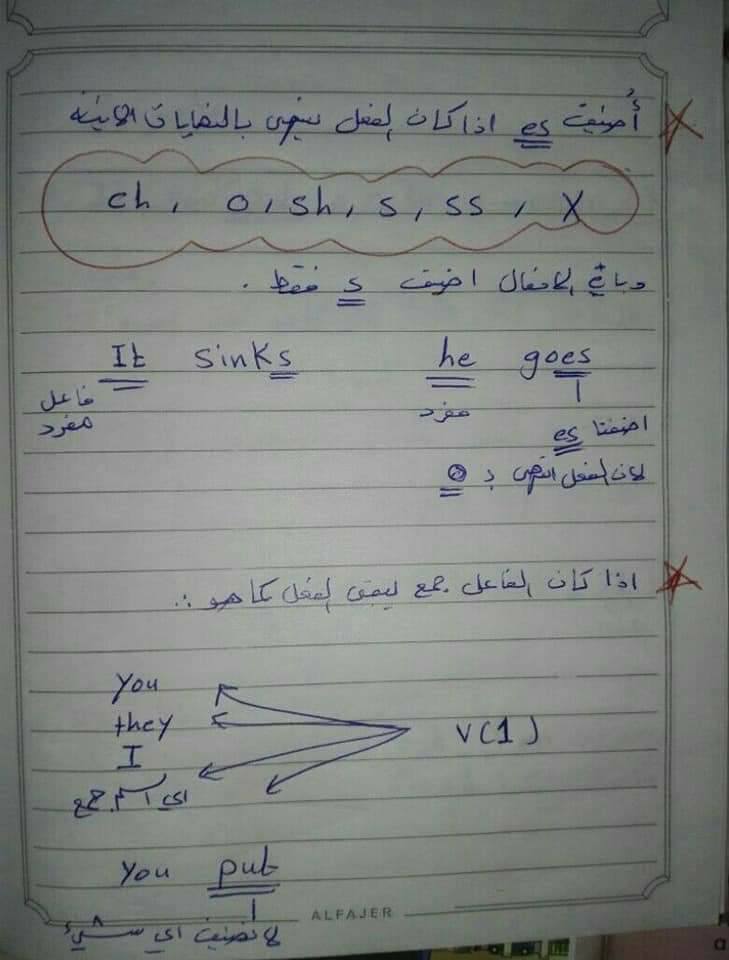 أضيف es اذا كان الفعل ينتهي بالنهايات الاتية
ch , o , sh , s , ss , X
وباقي الافعال اضيف s فقط .
he goes It sinks
مفرد فاعل مفرد
اضفنا es
لان الفعل انتهى بـ o
اذا كان الفاعل جمع يبقى الفعل كما هو :.
You
they
V(1)
I
اي اسم جمع
You put
ALFAJER
لا نضيف اي شيء